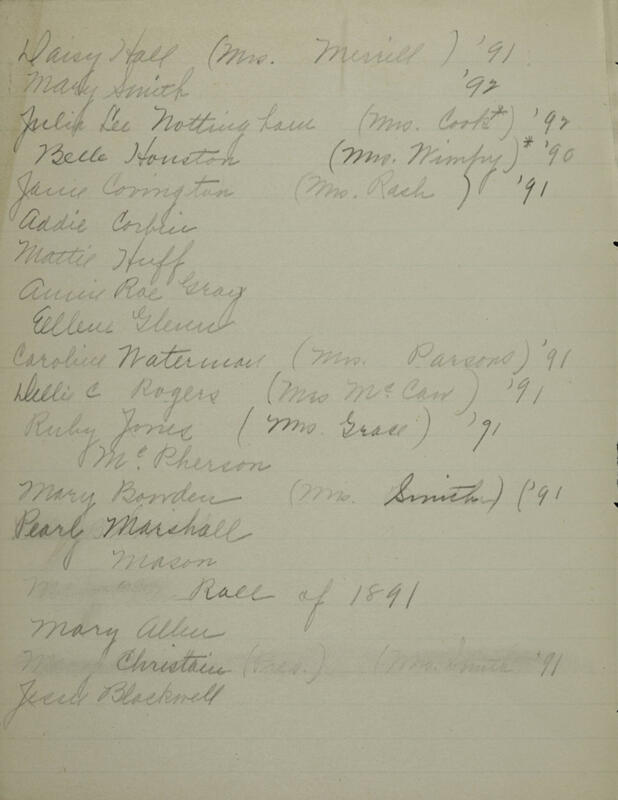 Daisy Hall (Mrs. Merrill) '91
Mary Smith '92
Julia Lee Nottingham (Mrs. Cook*) '92
Belle Houston (Mrs. Wimpy)* '90
Janie Covington (Mrs. Rash ) '91
Addie Corbin
Mattie Huff
Annie Roe Gray
Ellene Glenn
Caroline Waterman (Mrs. Parsons) '91
Dellie C Rogers (Mrs McCaw) '91
Ruby Jones (Mrs. Grace) '91
McPherson
Mary Bowden (Mrs. Smith) ('91
Pearl Marshall
Mason
Roll of 1891
Mary Allen
Christain (Pres.) (Mrs. Smith '91
Jessie Blackwell